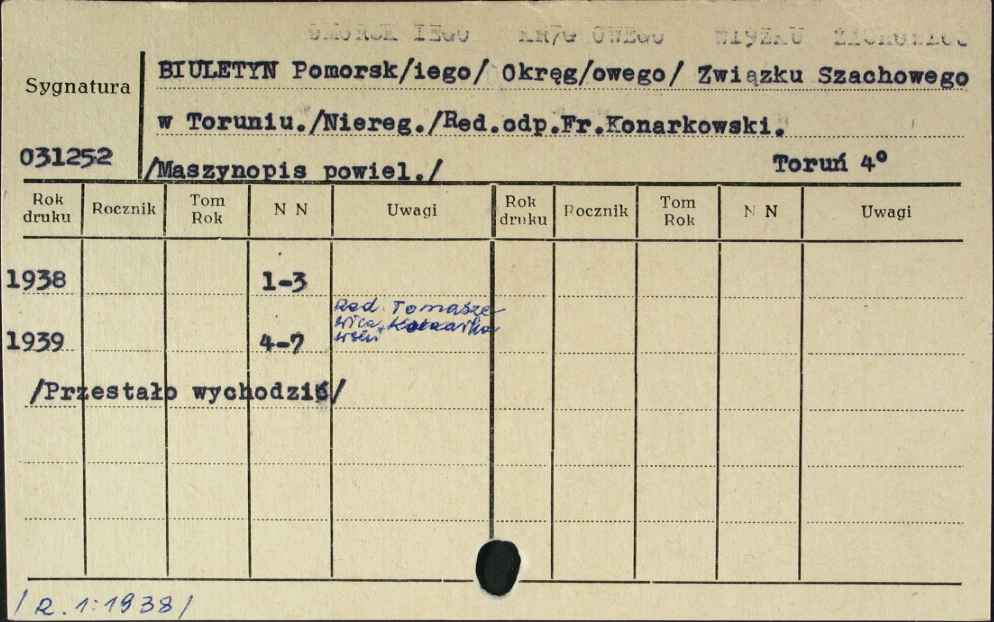 Sygnatura
BIULETYN Pomorsk/iego/ Okręg/owego/ Związku Szachowego
w Toruniu./Niereg./Red.odp.Fr.Konarkowski.
031252
/Maszynopis powiel./ Toruń 4°
Rok druku Rocznik Tom Rok N N Uwagi Rok druku Rocznik Tom Rok N N Uwagi
1938 1-3
Red. Tomasze
1939 4-7
/Przestało wychodzić/
/R. 1:1938/